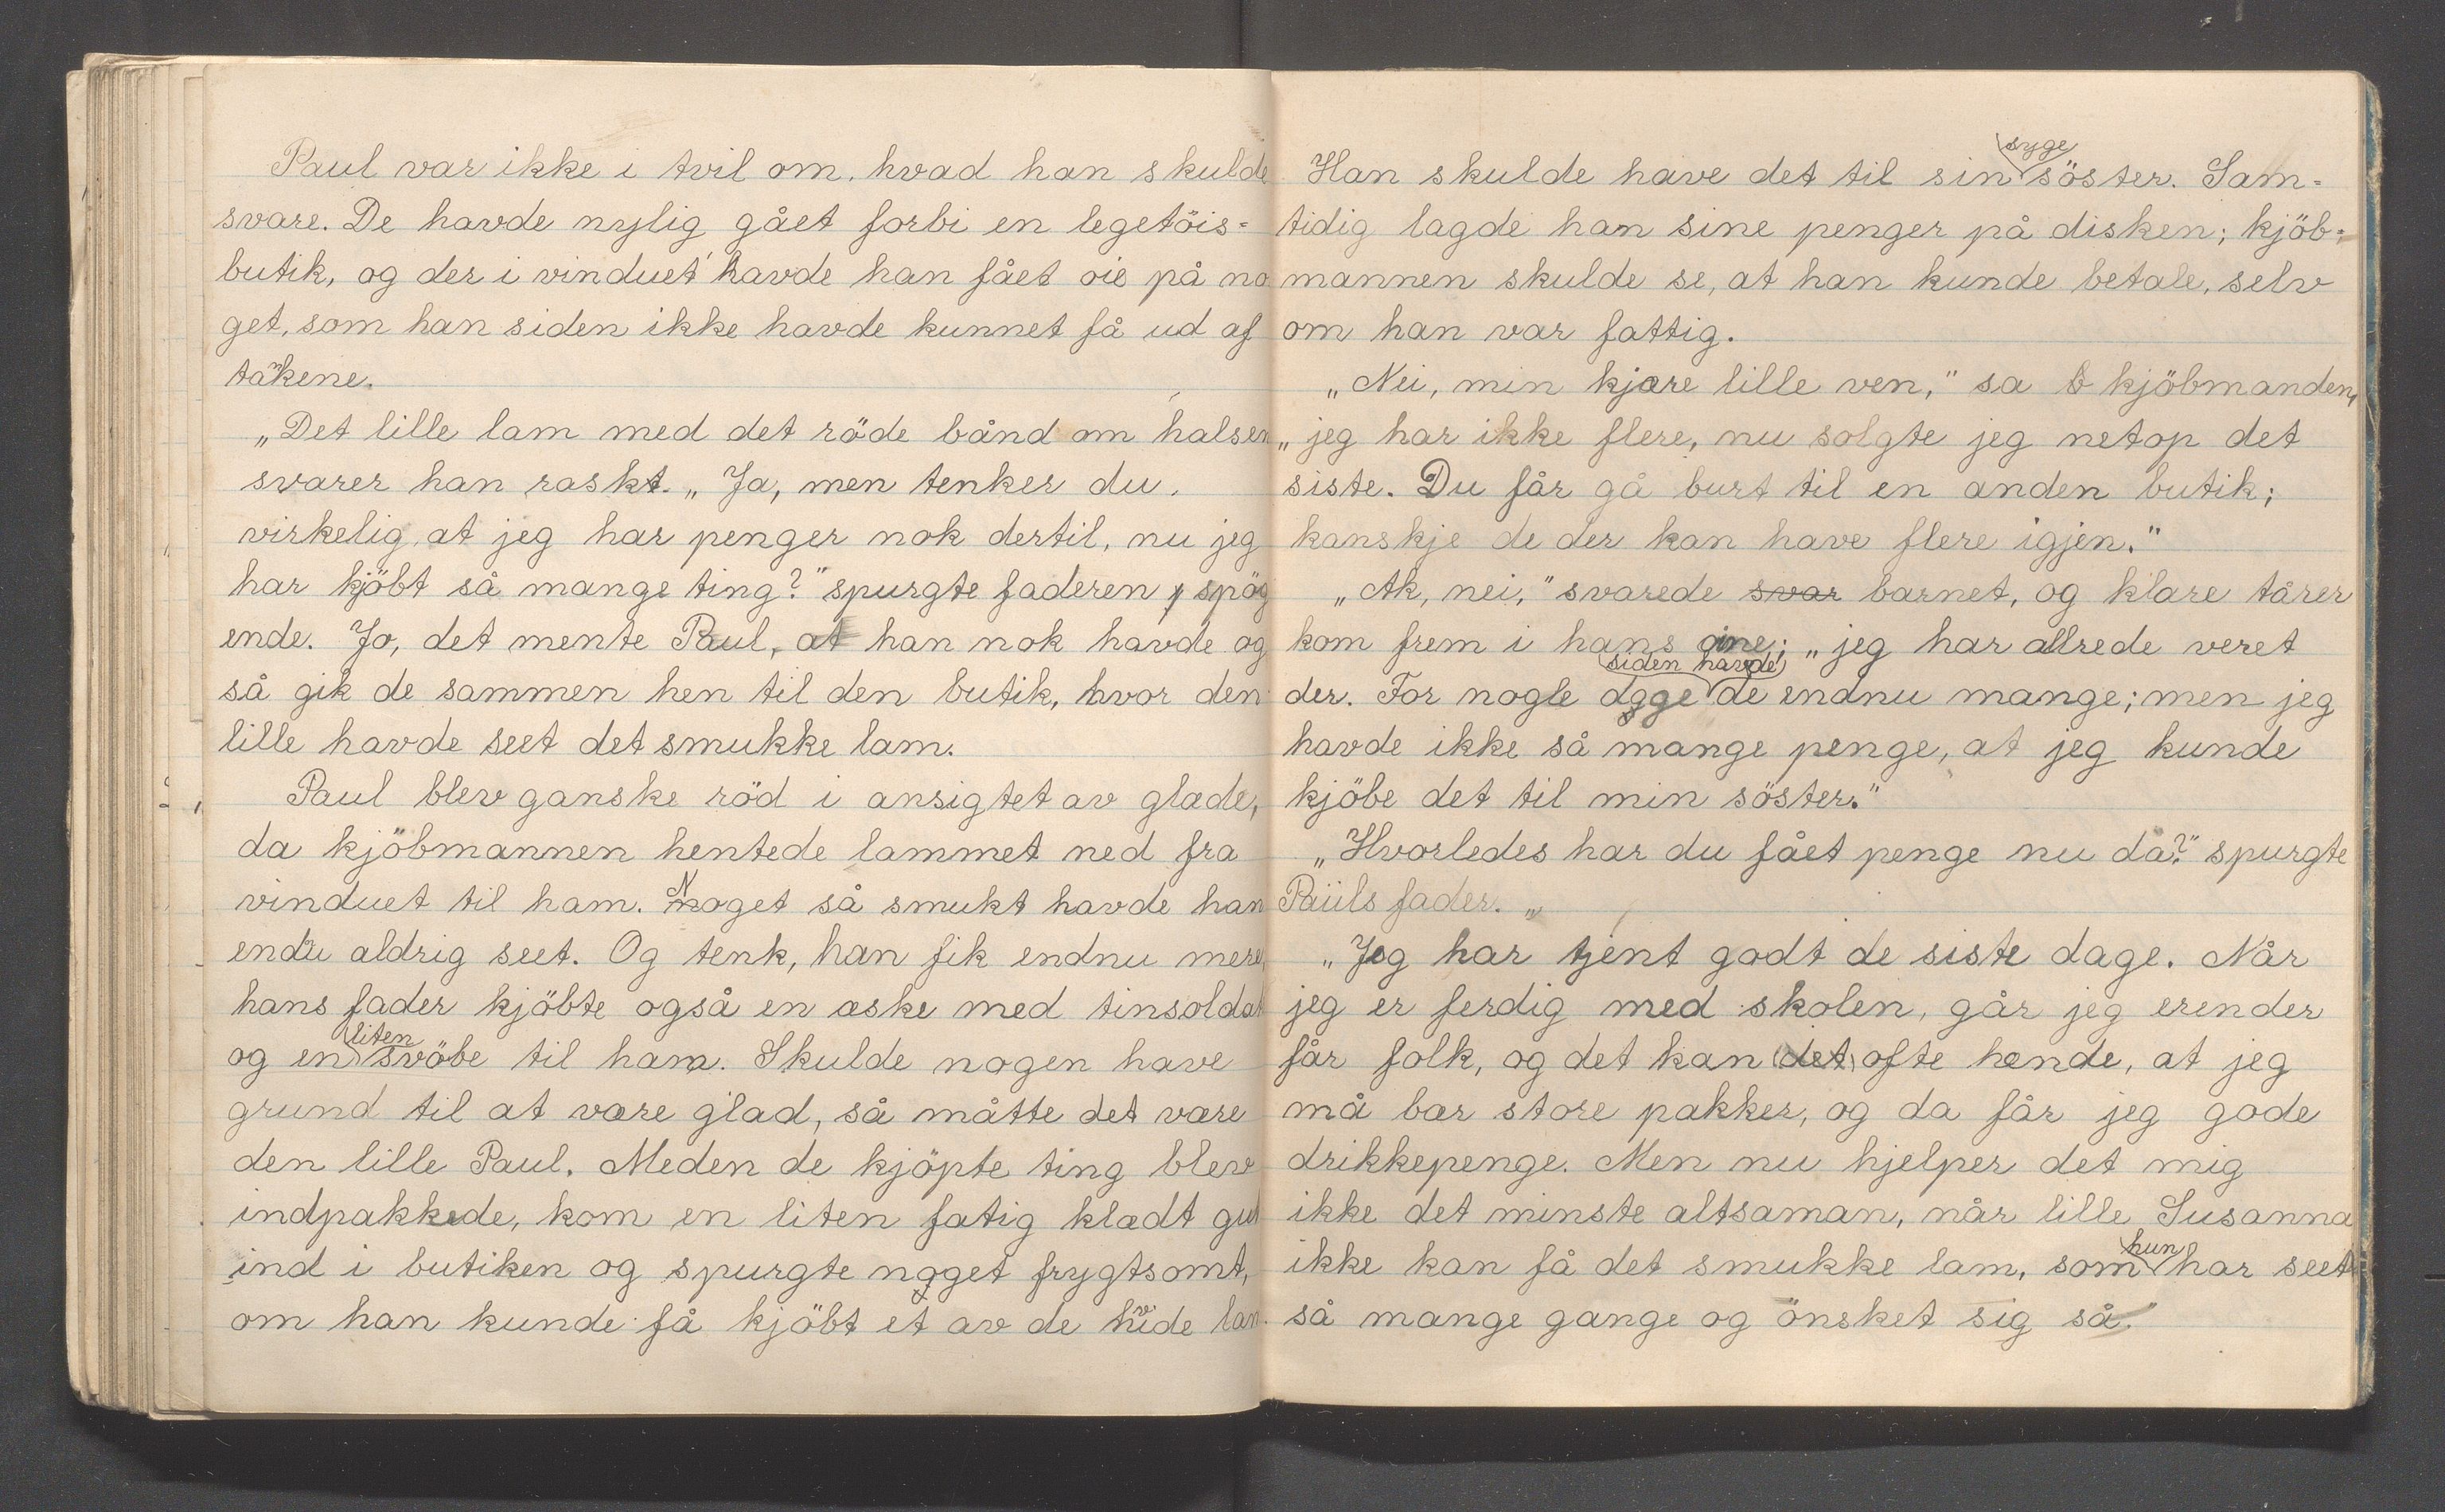 Paul var ikke i tvil om, hvad han skulde
svare. De havde nylig gået forbi en legetöis=
butik, og der i vinduet havde han fået öie på no
get, som han siden ikke havde kunnet få ud af
tåkene.
„Det lille lam med det röde bånd om halsen
svarer han raskt. „Ja, men tenker du,
virkelig, at jeg har penger nok dertil, nu jeg
har kjöbt så mange ting?" spurgte faderen spög
ende. Jo, det mente Paul, at han nok havde og
så gik de sammen hen til den butik, hvor den
lille havde seet det smukke lam.
Paul blev ganske röd i ansigtet av glæde,
da kjöbmannen hentede lammet ned fra
vinduet til ham. Noget så smukt havde han
endu aldrig seet. Og tenk, han fik endnu mere,
hans fader kjöbte også en æske med tinsoldat
og en liten svöbe til ham. Skulde nogen have
grund til at være glad, så måtte det være
den lille Paul. Meden de kjöpte ting blev
indpakkede, kom en liten fatig klædt gut
ind i butiken og spurgte noget frygtsomt,
om han kunde få kjöbt et av de hvide lam.
Han skulde have det til sin syge söster. Sam=
tidig lagde han sine penger på disken; kjöb=
mannen skulde se, at han kunde betale, selv
om han var fattig.
„Nei, min kjære lille ven," sa kjöbmanden,
„jeg har ikke flere, nu solgte jeg netop det
siste. Du får gå burt til en anden butik;
kanskje de der kan have flere igjen."
„Ak, nei," svarede svar barnet, og klare tårer
kom frem i hans öine; „jeg har allrede veret
der. For nogle dage siden havde de endnu mange; men jeg
havde ikke så mange penge, at jeg kunde
kjöbe det til min söster."
„Hvorledes har du fået penge nu da?" spurgte
Pauls fader. „
„Jeg har tjent godt de siste dage. Når
jeg er ferdig med skolen, går jeg erender
får folk, og det kan det ofte hænde, at jeg
må bær store pakker, og da får jeg gode
drikkepenge. Men nu hjelper det mig
ikke det minste altsaman, når lille Susanna
ikke kan få det smukke lam, som hun har seet
så mange gange og önsket sig så."